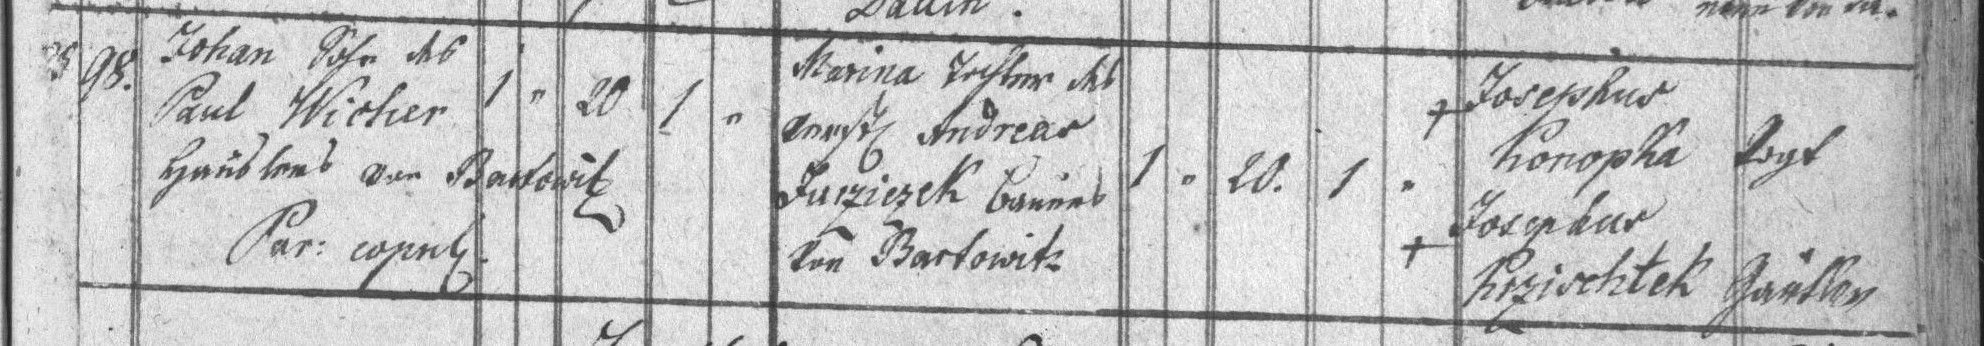 Dallin.
98.
Johan Sohn des
Paul Wicher
Häuslers von Bartowitz
Par: copul.
1 " 20 1 "
Marina Tochter des
Andreas
Jurziczek Bauers
von Bartowitz
1 " 20. 1 "
+ Josephus
Konopka Vogt
+ Josephus
Krzischtek Gärtler